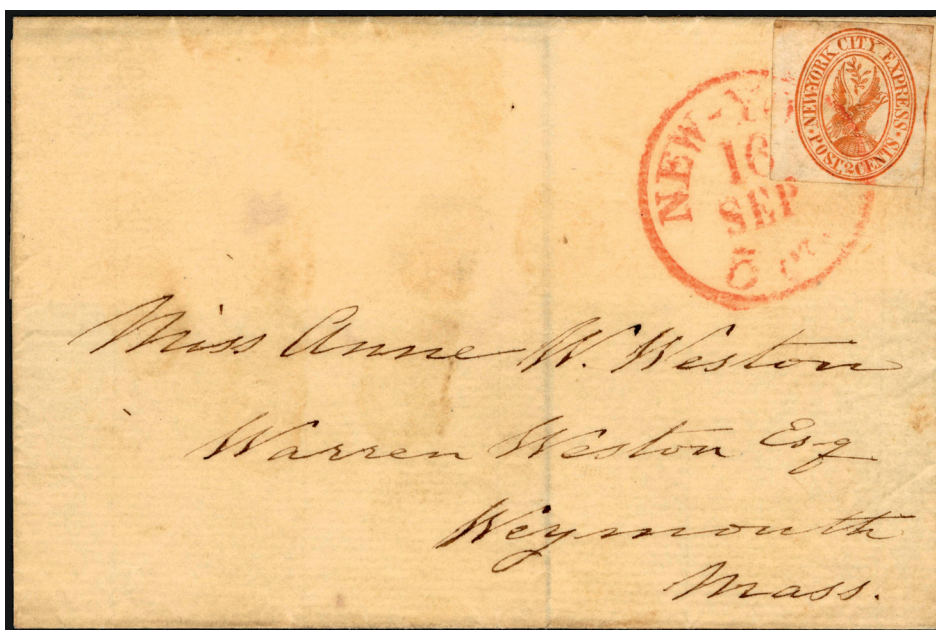 ·NEW-YORK CITY EXPRESS·
POST. 2 CENTS
NEW-Y
10
SEP
5 cts
Miss Anne W. Weston
Warren Weston Esq
Weymouth
Mass.